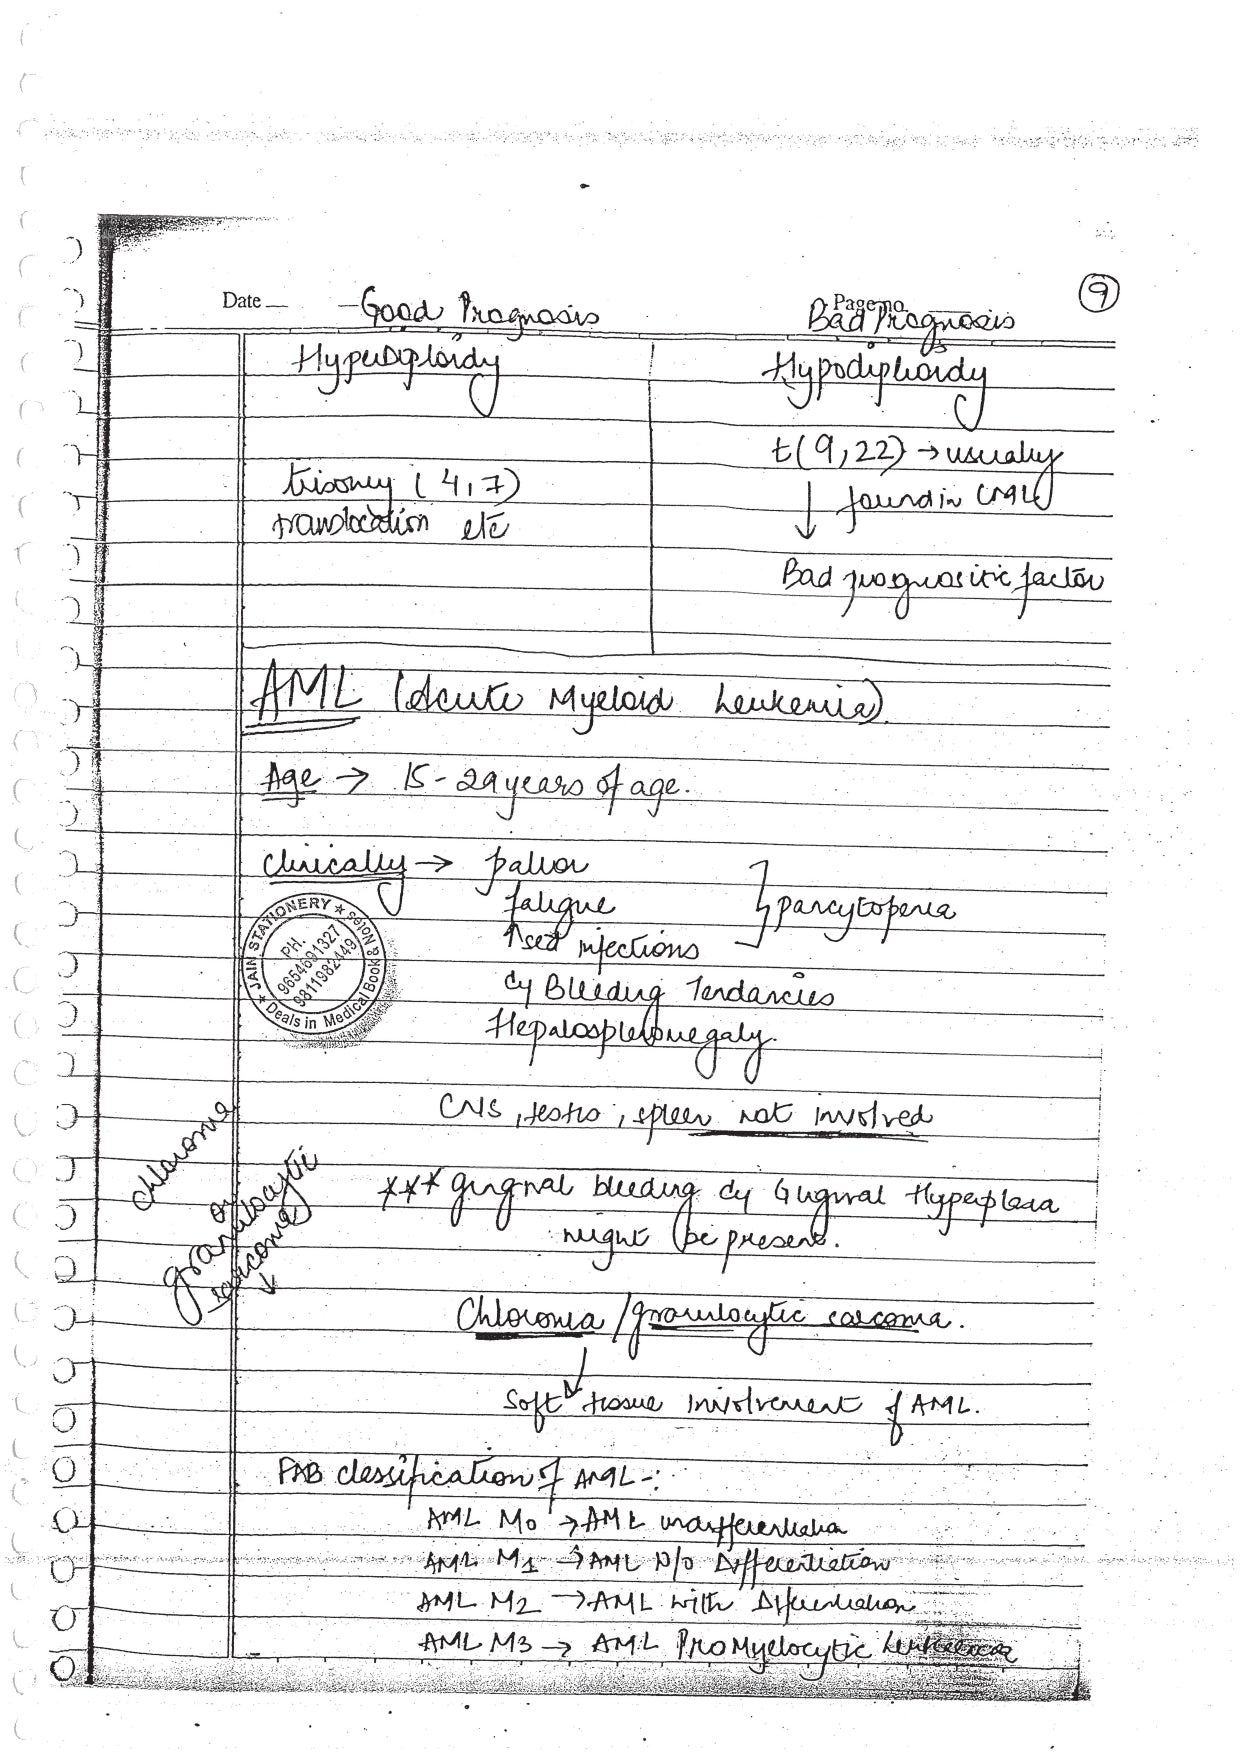 9
Date Page no.
Good Prognosis Bad Prognosis
Hyperdiploidy Hypodiploidy
t(9,22) → usually
found in CML
trisomy (4,7)
translocation etc
Bad prognositic factor
AML (Acute Myeloid Leukemia)
Age → 15-29 years of age.
Clinically → pallor
fatigue
↑sed infections
pancytopenia
c̄ Bleeding Tendancies
Hepatosplenomegaly.
JAIN STATIONERY
PH.
9654691327
9811982449
Deals in Medical Book & Notes
CNS, testis, spleen not involved
chloroma
or
granulocytic
sarcoma
↓
*** gingival bleeding c̄ Gingival Hyperplasia
might be present.
Chloroma / granulocytic sarcoma.
Soft tissue involvement of AML.
FAB classification of AML -:
AML M0 → AML undifferentiation
AML M1 → AML N/o Differentiation
AML M2 → AML with Differentiation
AML M3 → AML ProMyelocytic Leukemia